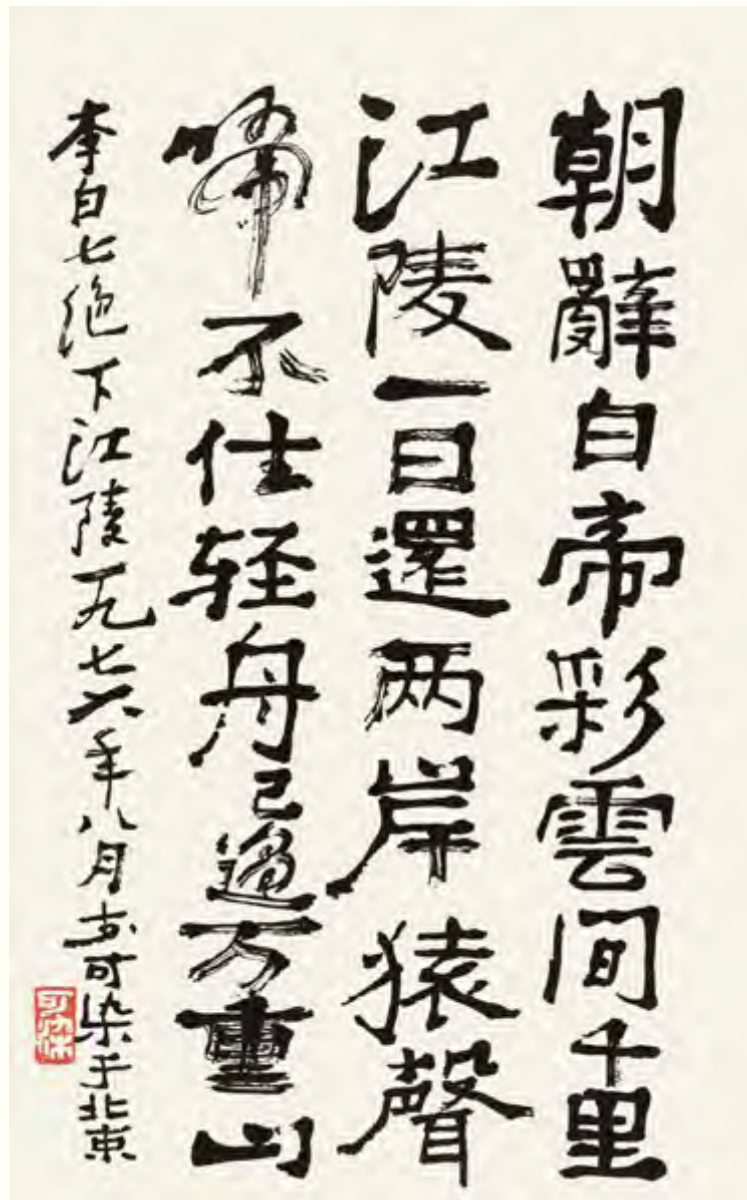 朝辭白帝彩雲间千里
江陵一日還两岸猿聲
啼不住轻舟已過万重山
李白七绝下江陵一九七六年八月可染于北京
可染